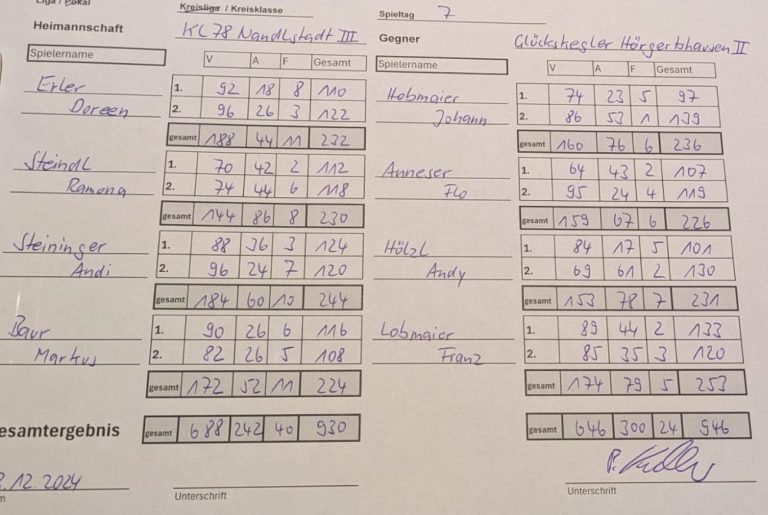 Liga / Pokal Kreisliga / Kreisklasse Spieltag 7
Heimannschaft KC 78 Nandlstadt III Gegner Glückskegler Hörgertshausen II
Spielername V A F Gesamt Spielername V A F Gesamt
Erler 1. 92 18 8 110 Hobmaier 1. 74 23 5 97
Doreen 2. 96 26 3 122 Johann 2. 86 53 1 139
gesamt 188 44 11 232 gesamt 160 76 6 236
Steindl 1. 70 42 2 112 Anneser 1. 64 43 2 107
Ramona 2. 74 44 6 118 Flo 2. 95 24 4 119
gesamt 144 86 8 230 gesamt 159 67 6 226
Steininger 1. 88 36 3 124 Hölzl 1. 84 17 5 101
Andi 2. 96 24 7 120 Andy 2. 69 61 2 130
gesamt 184 60 10 244 gesamt 153 78 7 231
Baur 1. 90 26 6 116 Lobmaier 1. 89 44 2 133
Markus 2. 82 26 5 108 Franz 2. 85 35 3 120
gesamt 172 52 11 224 gesamt 174 79 5 253
esamtergebnis gesamt 688 242 40 930 gesamt 646 300 24 946
.12.2024
Unterschrift Unterschrift